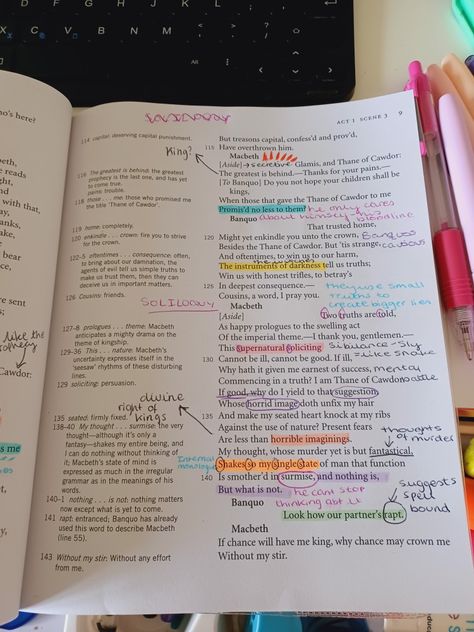 D F G H J K L
X C V B N M
SOLILOQUY
ACT 1 SCENE 3 9
114 capital: deserving capital punishment.
King?
116 The greatest is behind: the greatest
prophecy is the last one, and has yet
to come true.
pains: trouble.
118 those . . . me: those who promised me
the title 'Thane of Cawdor'.
119 home: completely.
120 enkindle . . . crown: fire you to strive
for the crown.
122–5 oftentimes . . . consequence: often,
to bring about our damnation, the
agents of evil tell us simple truths to
make us trust them, then they can
deceive us in important matters.
126 Cousins: friends.
SOLILOQUY
127–8 prologues . . . theme: Macbeth
anticipates a mighty drama on the
theme of kingship.
129–36 This . . . nature: Macbeth's
uncertainty expresses itself in the
'seesaw' rhythms of these disturbing
lines.
129 soliciting: persuasion.
divine
right of
kings
135 seated: firmly fixed.
138–40 My thought . . . surmise: the very
thought—although it's only a
fantasy—shakes my entire being, and
I can do nothing without thinking of
it; Macbeth's state of mind is
expressed as much in the irregular
grammar as in the meanings of his
words.
internal
monologue
140–1 nothing . . . is not: nothing matters
now except what is yet to come.
141 rapt: entranced; Banquo has already
used this word to describe Macbeth
(line 55).
143 Without my stir: Without any effort
from me.
But treasons capital, confess'd and prov'd,
115 Have overthrown him.
Macbeth
[Aside] → secretive Glamis, and Thane of Cawdor:
The greatest is behind.—Thanks for your pains.—
[To Banquo] Do you not hope your children shall be
kings,
When those that gave the Thane of Cawdor to me
Promis'd no less to them? he only cares
Banquo about himself & his bloodline
That trusted home,
120 Might yet enkindle you unto the crown, Banquo's
Besides the Thane of Cawdor. But 'tis strange, cautious
And oftentimes, to win us to our harm,
The instruments of darkness tell us truths; the witches
Win us with honest trifles, to betray's
125 In deepest consequence.— they use small
Cousins, a word, I pray you. truths to
Macbeth create bigger lies
[Aside] Two truths are told,
As happy prologues to the swelling act
Of the imperial theme.—I thank you, gentlemen.—
This supernatural soliciting sibilance - sly
130 Cannot be ill, cannot be good. If ill, = like snake
Why hath it given me earnest of success, mental
Commencing in a truth? I am Thane of Cawdor. battle
If good, why do I yield to that suggestion
Whose horrid image doth unfix my hair
135 And make my seated heart knock at my ribs
Against the use of nature? Present fears
Are less than horrible imaginings. thoughts of murder
My thought, whose murder yet is but fantastical,
Shakes so my single state of man that function
140 Is smother'd in surmise, and nothing is,
But what is not. he cant stop
Banquo thinking abt it
suggests
spell
bound
Look how our partner's rapt.
Macbeth
If chance will have me king, why chance may crown me
Without my stir.